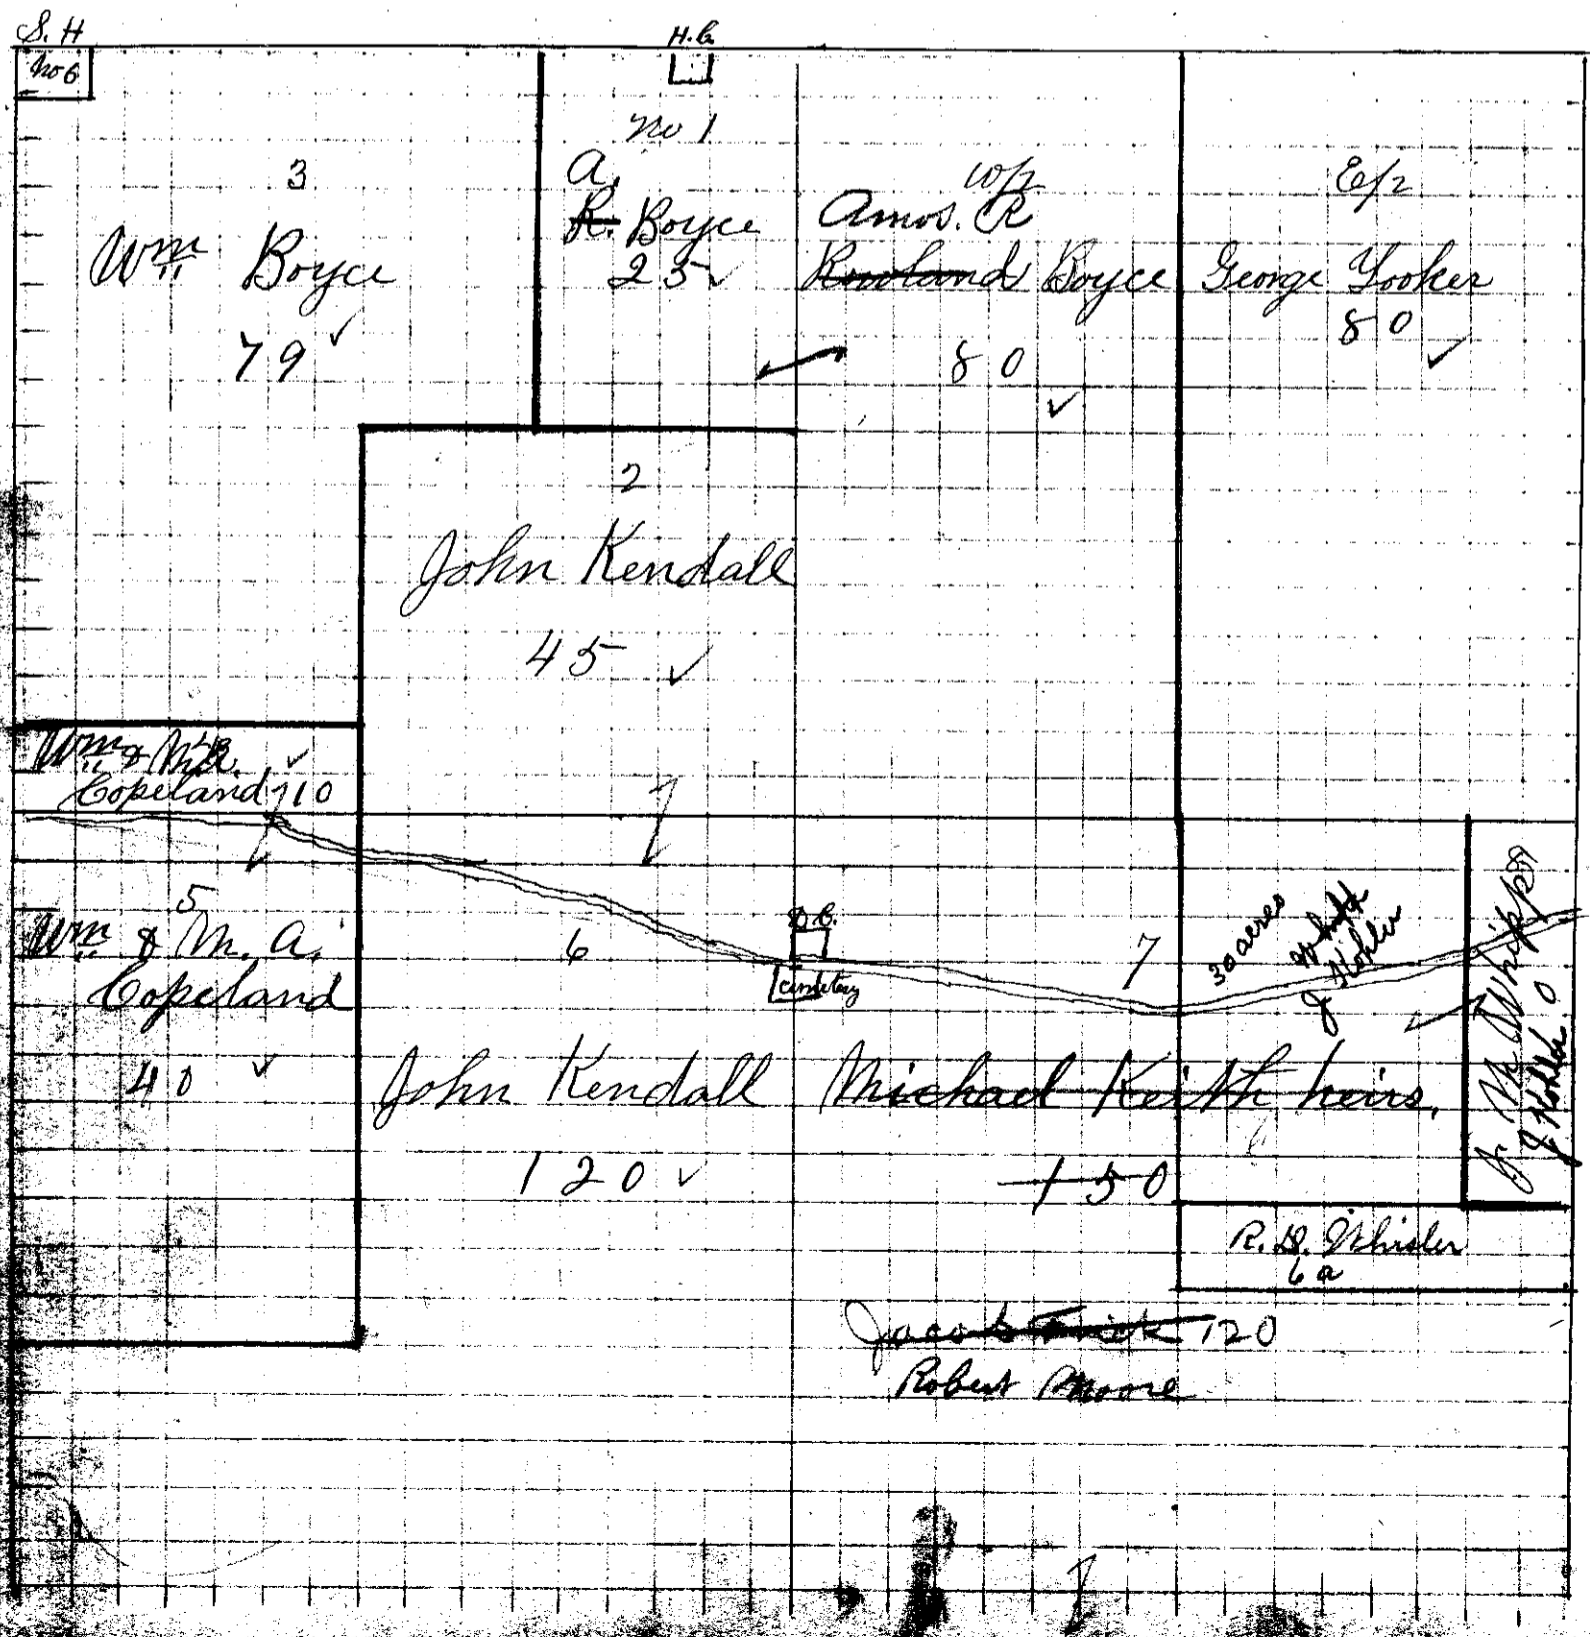 S. H
No 6
H. C.
No 1
3
Wm Boyce
79
A.
R. Boyce
25
W/2
Amos. R
Rowland Boyce
80
E/2
George Yooker
80
2
John Kendall
45
Wm & M.A.
Copeland 10
5
Wm & M. A.
Copeland
40
6
John Kendall
120
Cemetery
7
30 acres
J Kohler
Michael Keith heirs.
150
M Whipp
J Kohler
R. D. Whisler
6 a
Jacob Frick 120
Robert Moore